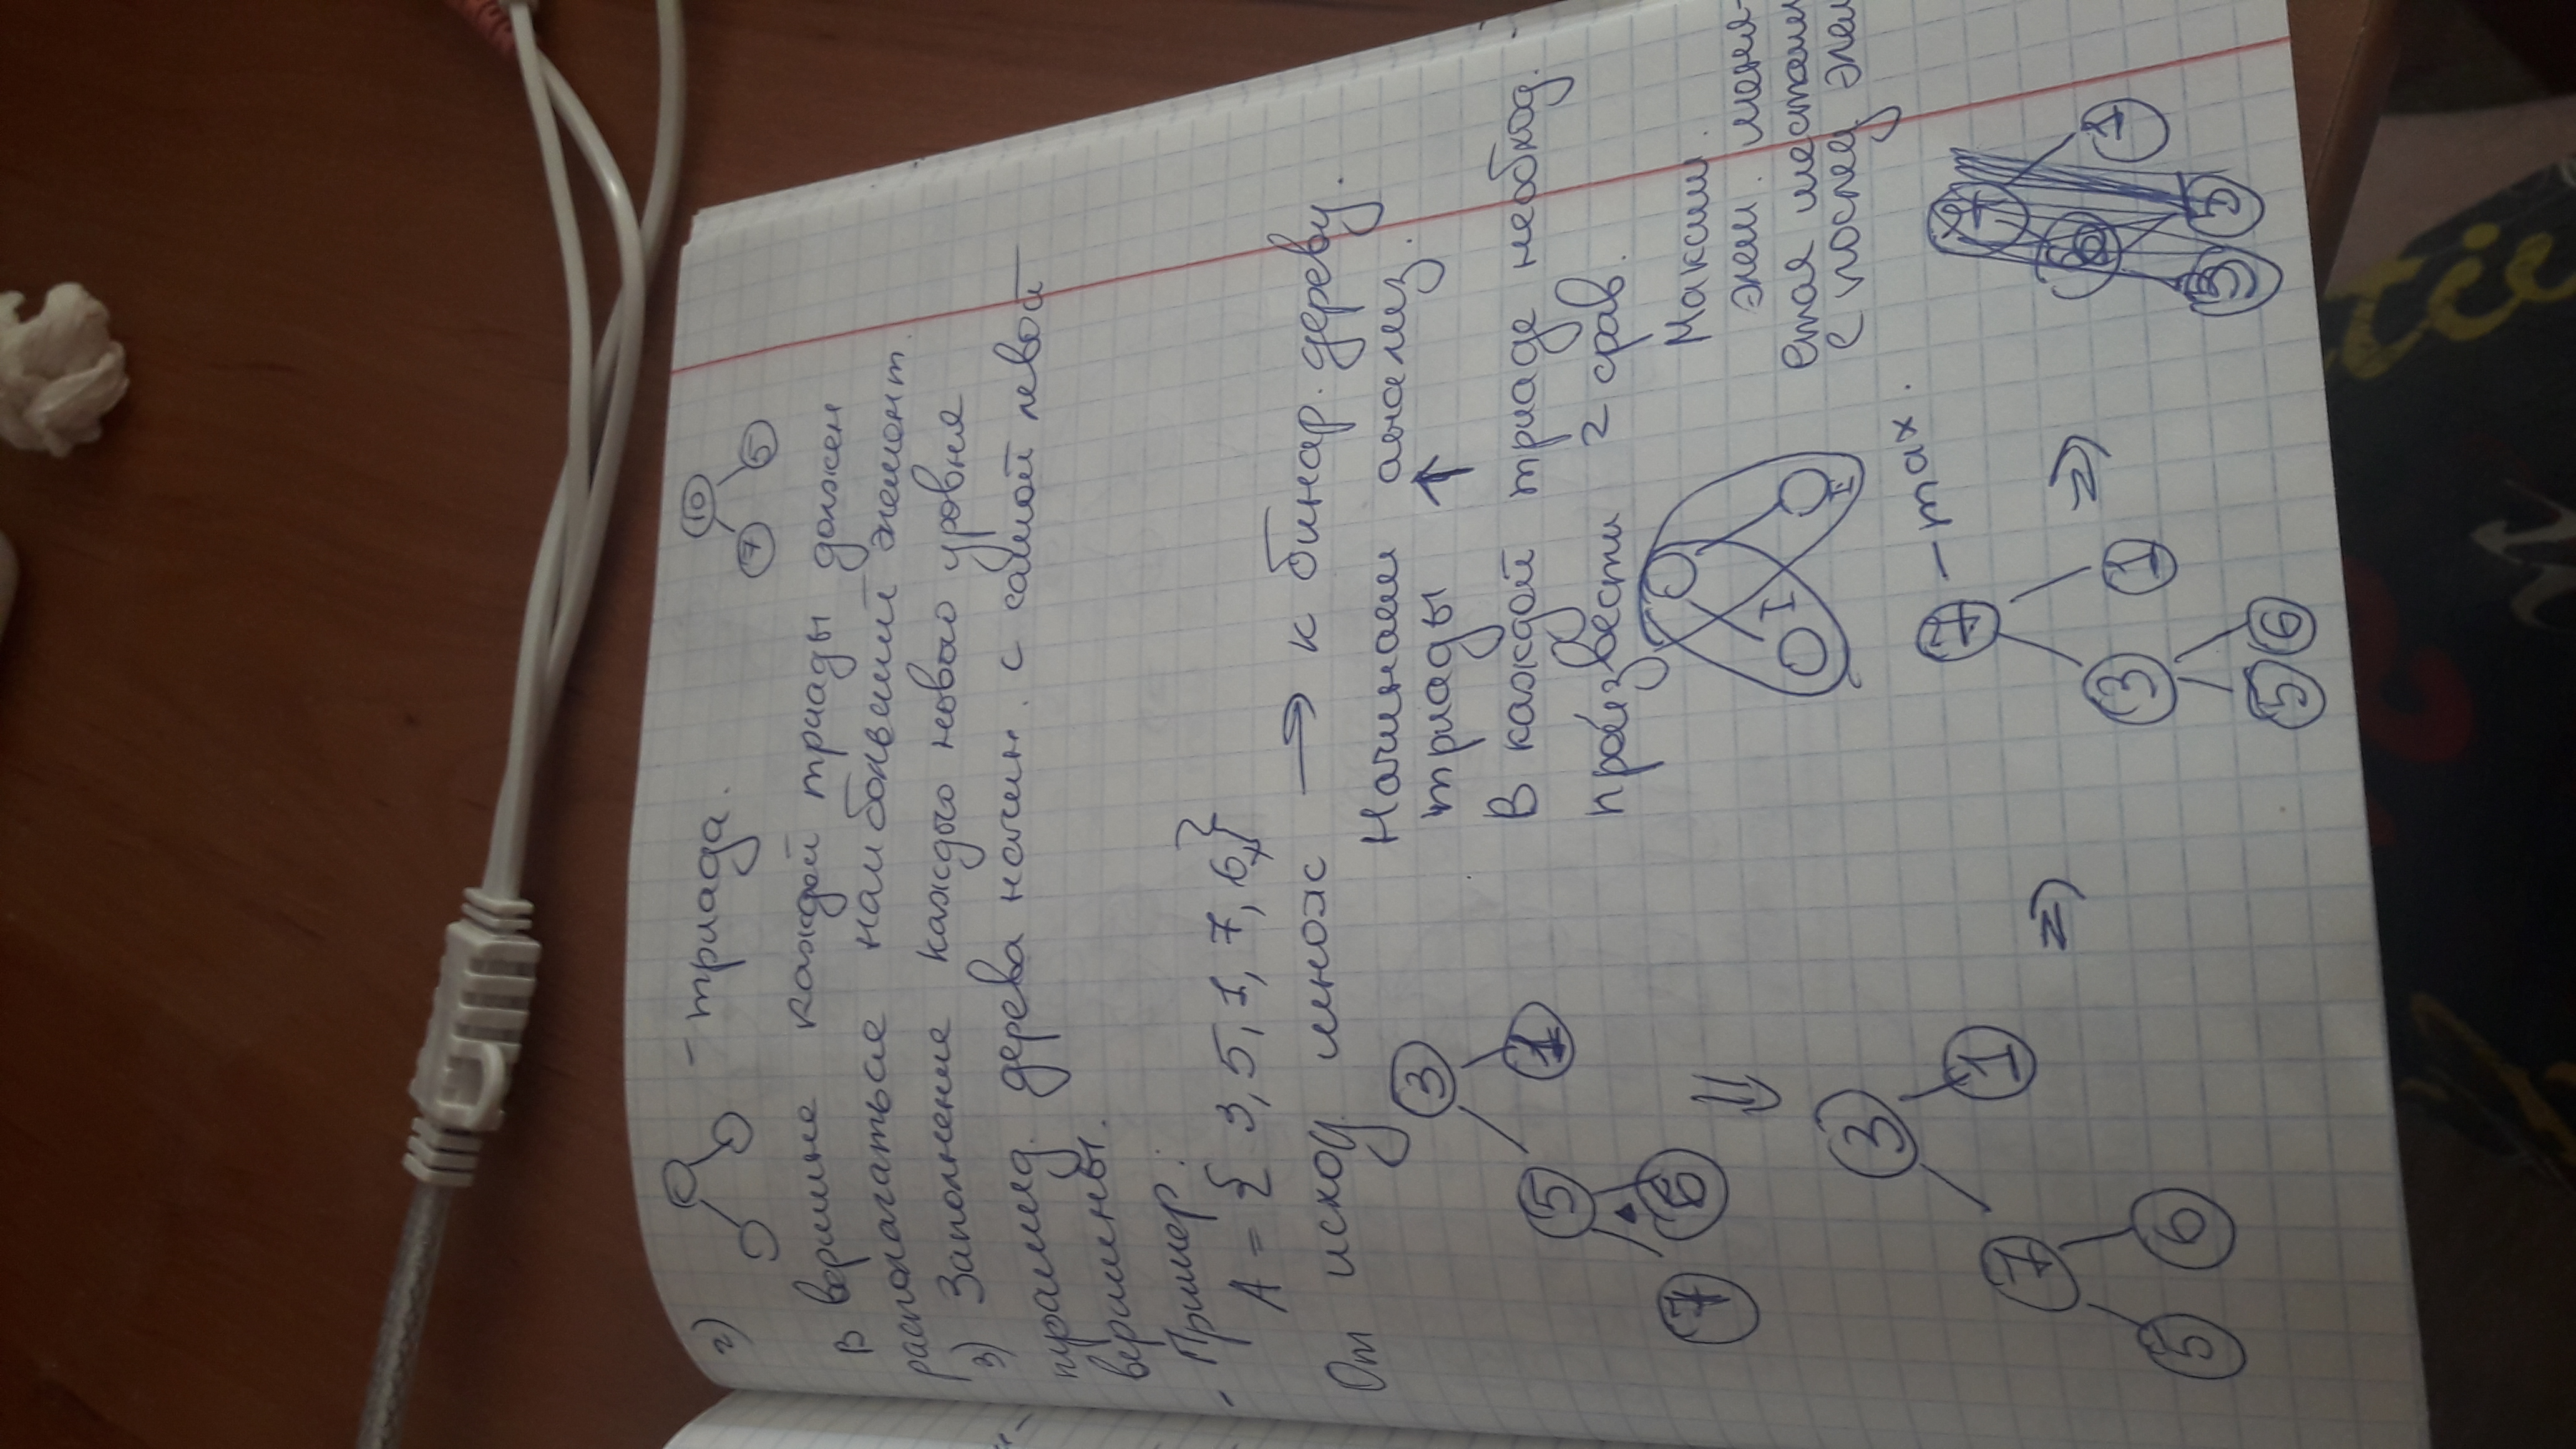 2) - триада.
10
7 5
В вершине каждой триады должен
располагаться наибольший элемент.
3) Заполнение каждого нового уровня
пирамид. дерева начин. с самой левой
вершины.
- Пример:
A = { 3, 5, 1, 7, 6, }
От исход. множ → к бинар. дереву.
Начинаем анализ.
триады ↑
В каждой триаде необход.
произвести 2 срав.
3
5 1
7 6
⇓
I I
Максим.
элем. меня-
ется местами
с послед. элем
3
7 1
5 6
⇒
7 - max.
3 1
5 6
⇒
1
5